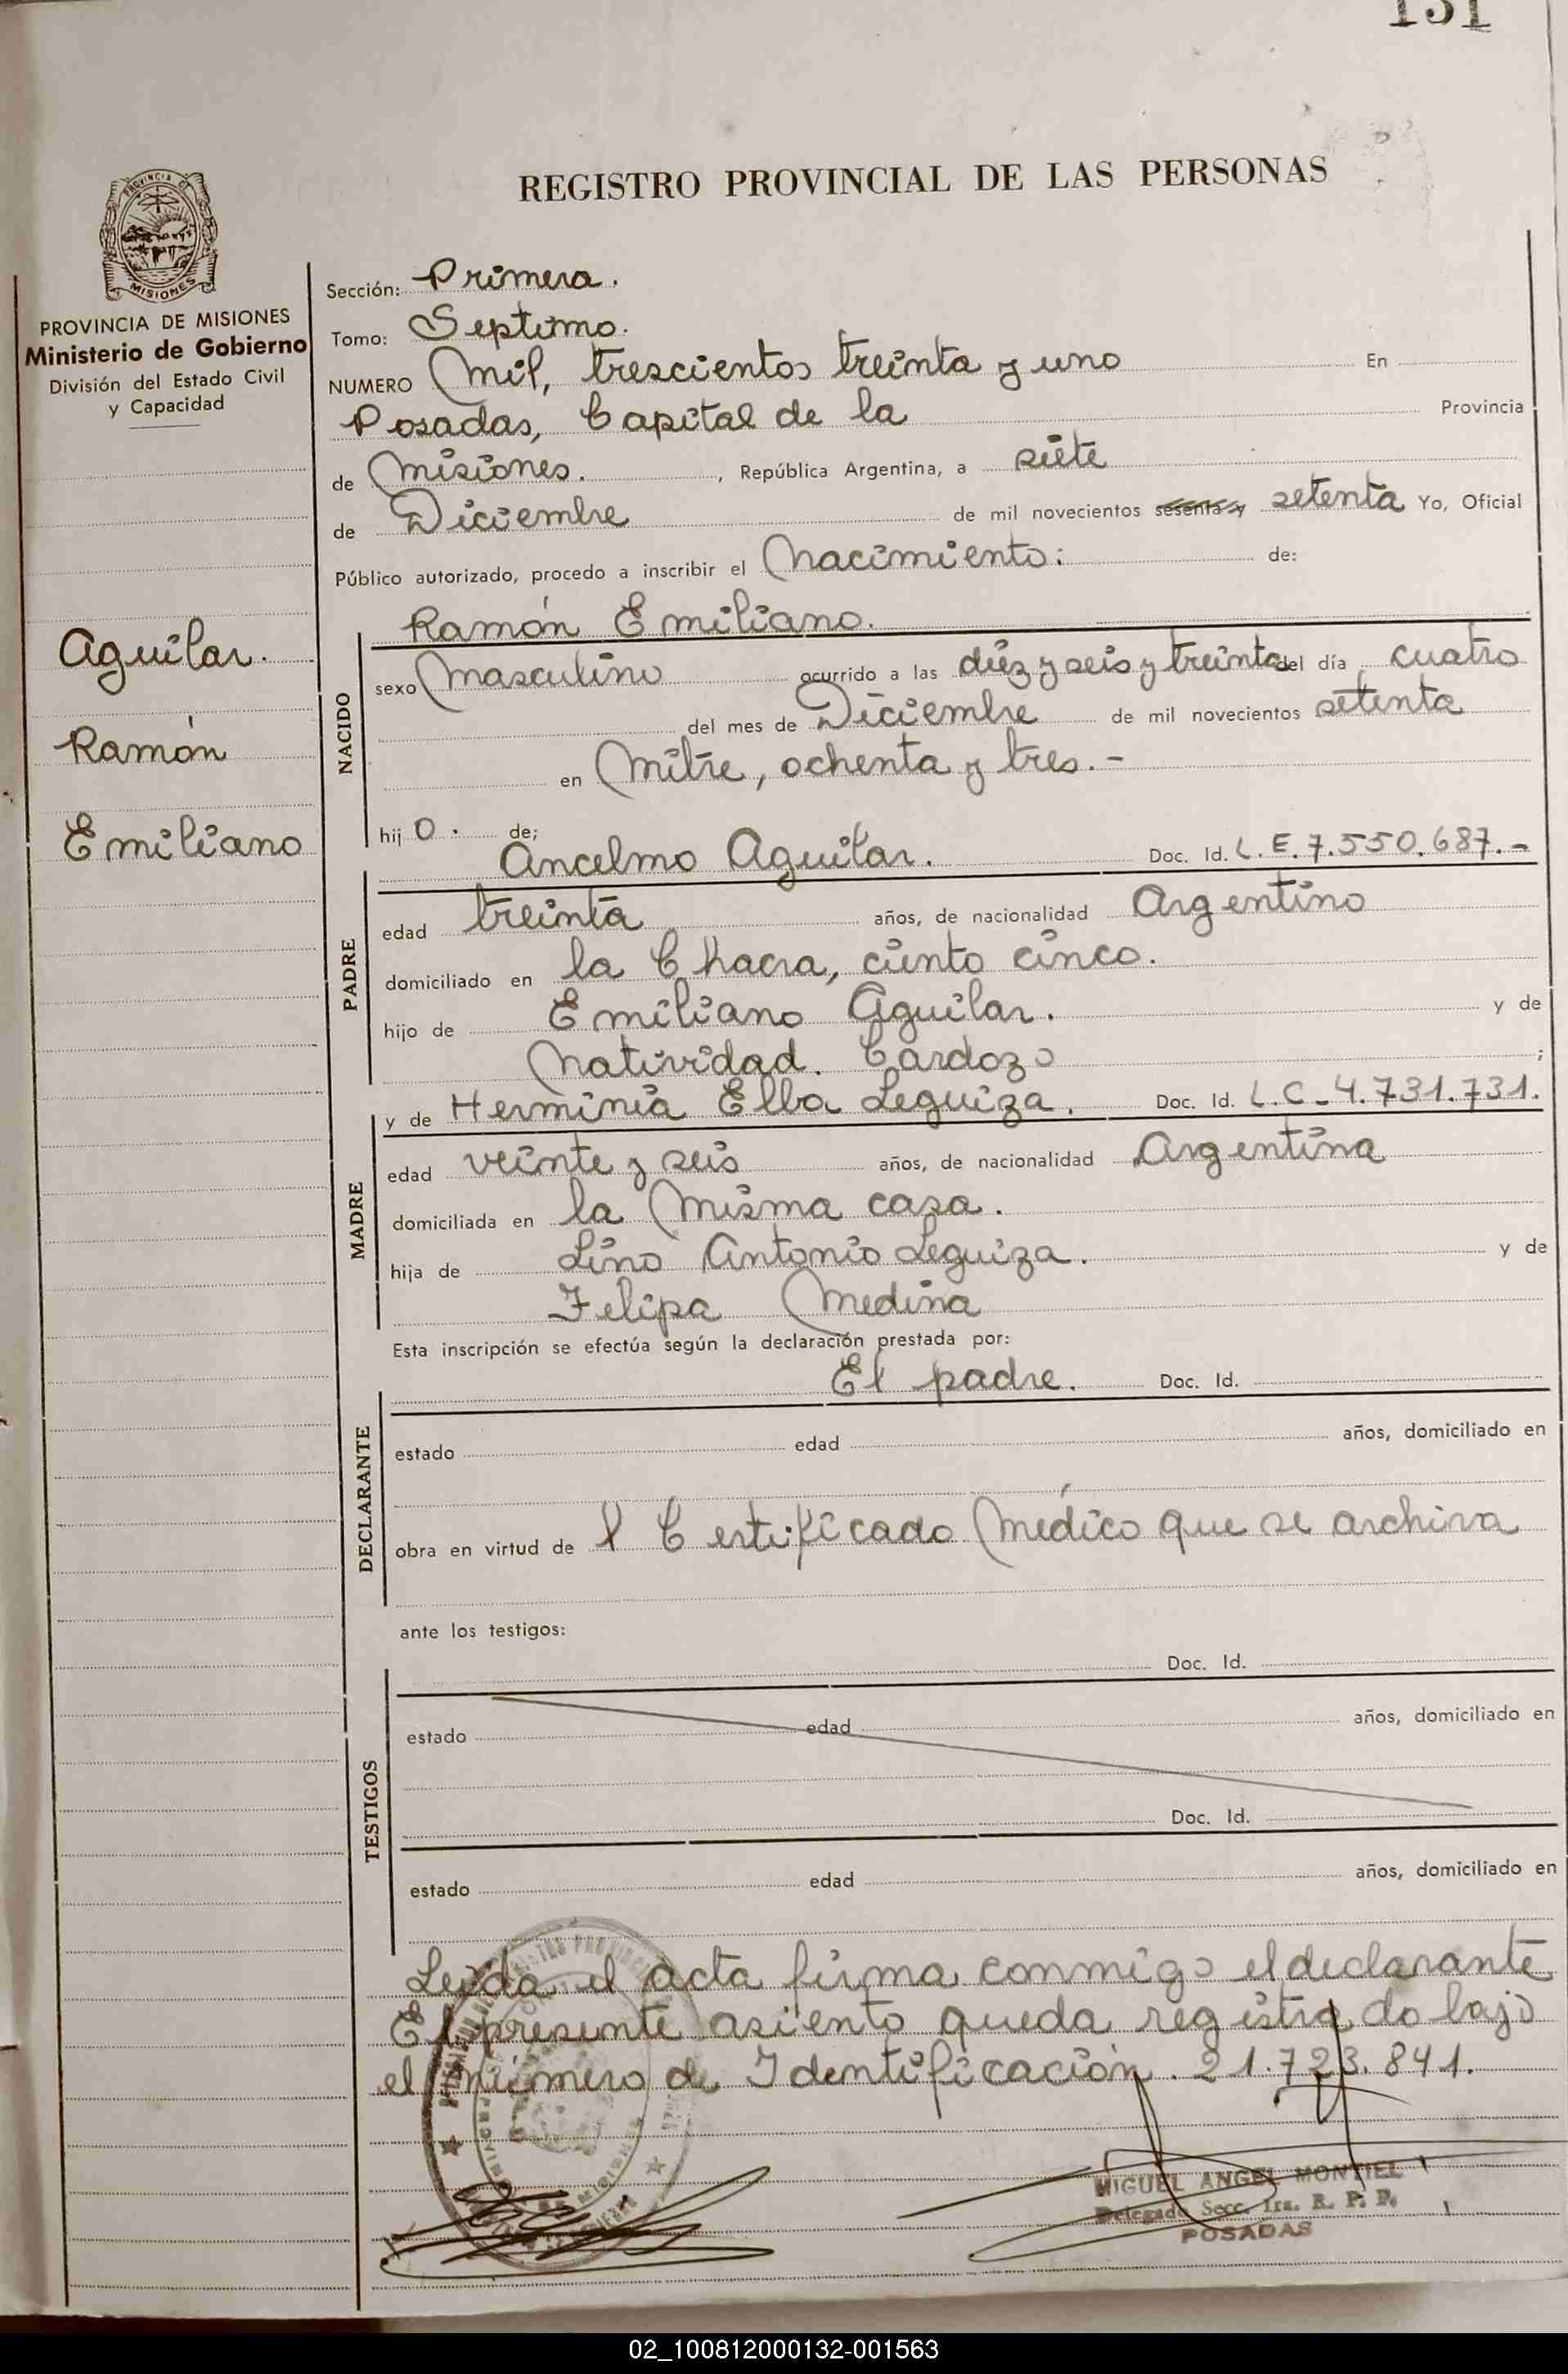 131
REGISTRO PROVINCIAL DE LAS PERSONAS
PROVINCIA DE
MISIONES
PROVINCIA DE MISIONES
Ministerio de Gobierno
División del Estado Civil
y Capacidad
Aguilar.
Ramón
Emiliano
Sección: Primera.
Tomo: Septimo.
NUMERO Mil, trescientos treinta y uno En
Posadas, Capital de la Provincia
de Misiones. , República Argentina, a siete
de Diciembre de mil novecientos sesenta y setenta Yo, Oficial
Público autorizado, procedo a inscribir el Nacimiento: de:
Ramón Emiliano.
NACIDO
sexo Masculino ocurrido a las diez y seis y treinta del día cuatro
del mes de Diciembre de mil novecientos setenta
en Mitre, ochenta y tres. -
hij o. de;
Ancelmo Aguilar. Doc. Id. L.E. 7.550.687.-
PADRE
edad treinta años, de nacionalidad Argentino
domiciliado en la Chacra, ciento cinco.
hijo de Emiliano Aguilar. y de
Natividad. Cardozo ;
y de Herminia Elba Leguiza. Doc. Id. L.C_4.731.731.
MADRE
edad veinte y seis años, de nacionalidad Argentina
domiciliada en la Misma casa.
hija de Lino Antonio Leguiza. y de
Felipa Medina
Esta inscripción se efectúa según la declaración prestada por:
El padre. Doc. Id.
DECLARANTE
estado edad años, domiciliado en
obra en virtud de l Certificado Médico que se archiva
ante los testigos:
Doc. Id.
TESTIGOS
estado edad años, domiciliado en
Doc. Id.
estado edad años, domiciliado en
Leida el acta firma conmigo el declarante
El presente asiento queda registrado bajo
el número de Identificación. 21.723.841.
MIGUEL ANGEL MONTIEL
Delegado Secc. 1ra. R. P. P.
POSADAS
02_100812000132-001563